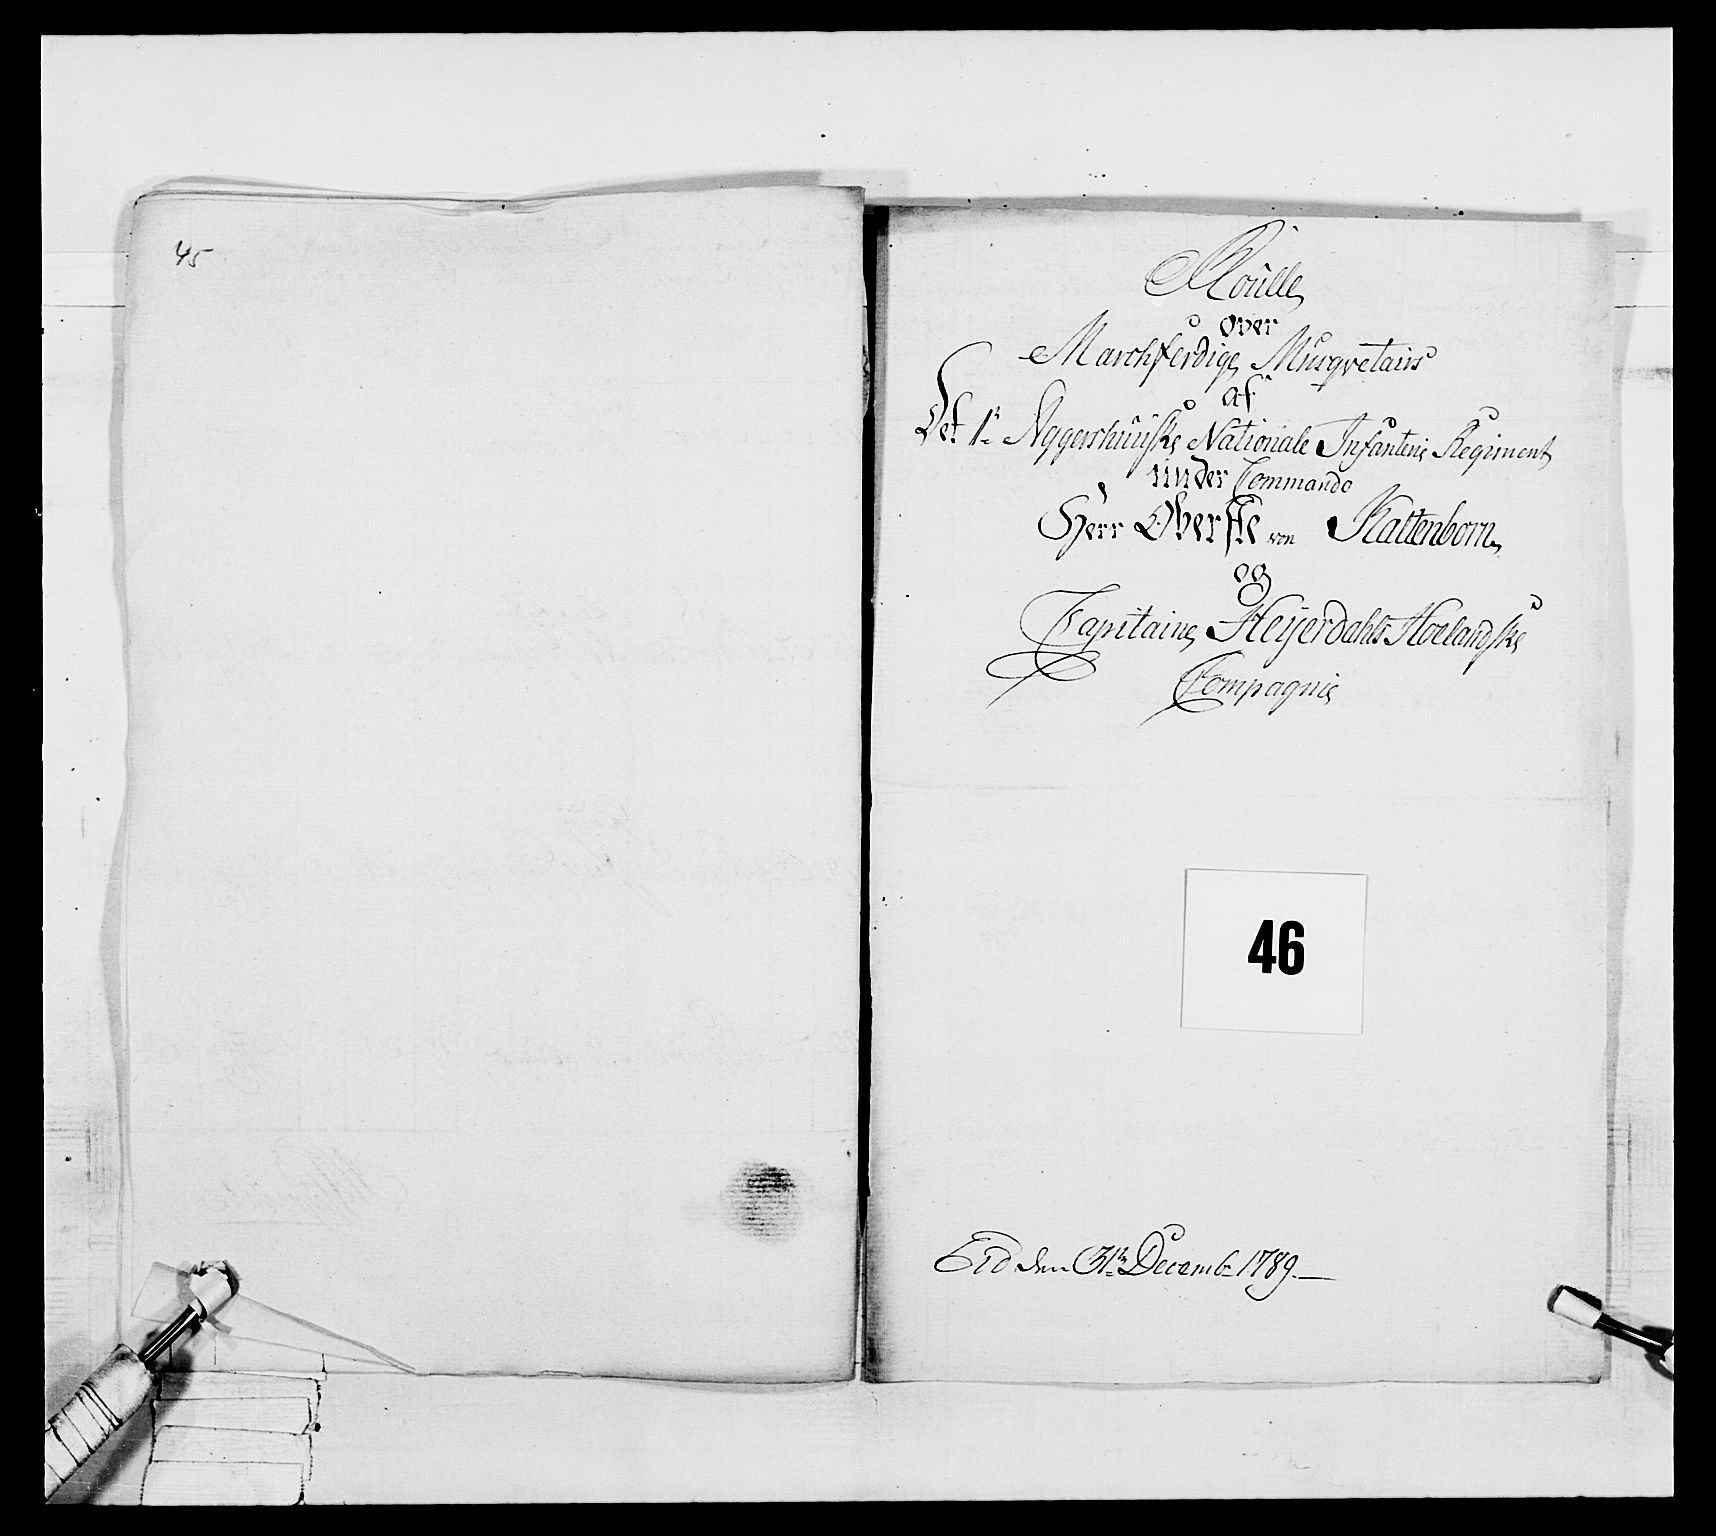 45
Roulle
over
Marchferdige Musqvetairs
af
Det 1ᵗᵉ Aggershuuske Nationale Infanterie Regiment
under Commando
Herr Oberste von Kaltenborn
og
Capitaine Heyerdahls Hoelandske
Compagnie
46
Eid den 31ᵗᵉ Decemb 1789.